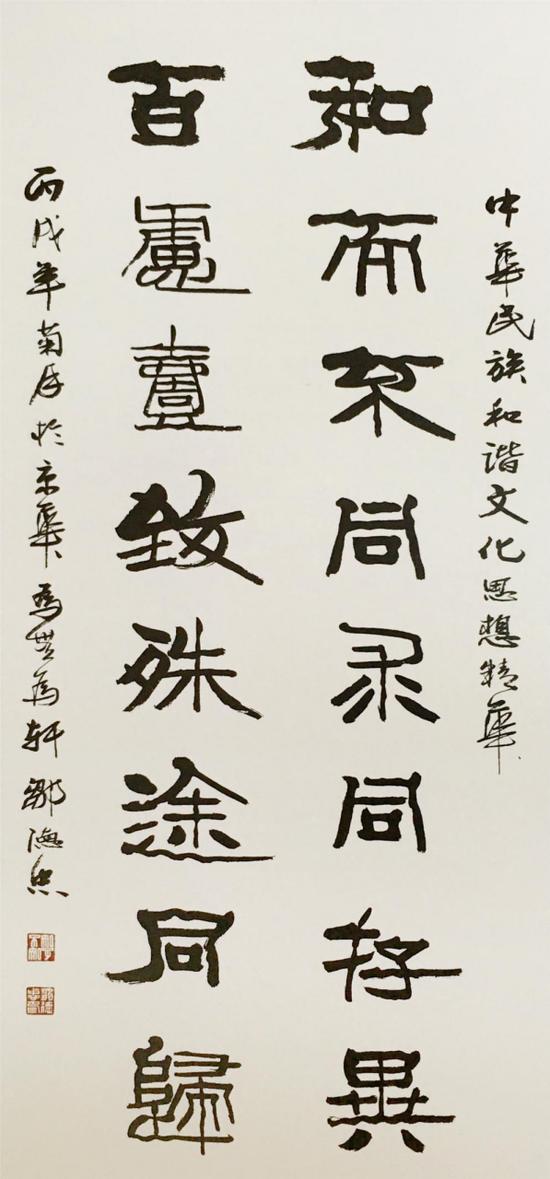 中華民族和谐文化思想精華
和而不同求同存異
百慮壹致殊途同歸
丙戌年菊月於京華為無為轩鄒德忠